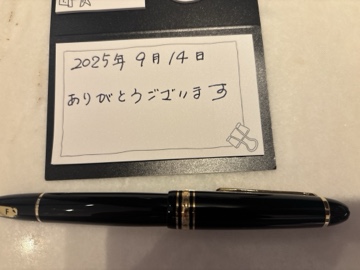 2025年9月14日
ありがとうございます